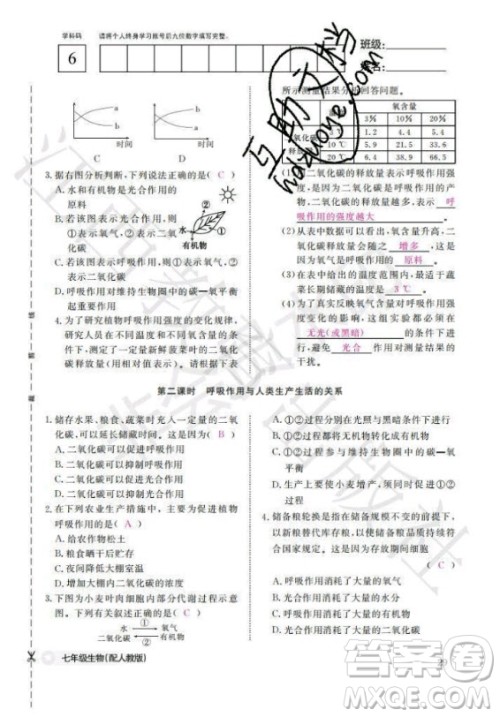 学科码
请将个人终身学习账号后九位数字填写完整。
6
班级:
a
b
时间
C
a
b
时间
D
3. 据右图分析判断,不正确的是( C )
A. 水和有机物是光合作用的
原料
B. 若该图表示光合作用,则
①表示氧气,②表示二氧
化碳
C. 若该图表示呼吸作用,则
①表示氧气,②表示二氧化碳
D. 该图对维持生物圈中的碳—氧平衡
起重要作用
水
①
②
有机物
4. 为了研究植物呼吸作用强度的变化规律,
研究人员在不同的温度和不同的氧含量
条件下,测定了一定量新鲜菠菜叶的二氧
化碳释放量(表内数据为相对值)。请据下
所示测量结果分析回答问题。
氧含量
3%
10%
20%
二氧化碳
释放量
1.2
2.4
4.4
10 ℃
5.9
14.4
20 ℃
15.4
(1) 二氧化碳的释放量表示呼吸作用强
度,二氧化碳的释放量越多,表示
呼吸作用的强度越大 。
(2) 从表中数据可以看出,呼吸作用中二
氧化碳的释放量随氧含量的增多而
增多 ,可见氧气是呼吸作用的
原料 。
(3) 在表中给出的温度范围内,蔬菜瓜果
长期储藏的温度是 3 ℃ 。
(4) 为了真实反映氧气含量与温度对呼吸
作用强度的影响,该实验应在
无光(或黑暗) 的条件下进行,以
避免 光合 作用的干扰。
第二课时 呼吸作用与人类生产生活的关系
1. 储存水果、粮食、蔬菜时充入一定量的二氧
化碳,可延长储藏时间,这是因为( B )
A. 二氧化碳可以促进呼吸作用
B. 二氧化碳可以抑制呼吸作用
C. 二氧化碳可以促进光合作用
D. 二氧化碳可以抑制光合作用
2. 在下列农业生产措施中,能够促进植物进行
呼吸作用的是( A )
A. 给农作物松土
B. 给农作物浇水
C. 夜晚给大棚降温
D. 增加大棚里二氧化碳的浓度
3. 下图为小麦叶肉细胞中物质变化的示意
图。下列有关叙述正确的是( C )
二氧化碳
①
②
有机物
A. ①②过程分别在光照和黑暗条件下
进行
B. ①过程消耗氧气,②过程产生氧气
C. ①过程储存能量,②过程释放能量
D. 生产上,要使小麦增产,应促进①②
过程
4. 储备粮轮换是指在储备规模不变的前提下,
以新粮替代库存中的旧粮,确保粮食质量和
国家粮食安全。库存时间越久的粮食营养流
失越多,主要原因是存放期间细胞( C )
A. 呼吸作用消耗了大量的氧气
B. 光合作用消耗了大量的水
C. 呼吸作用消耗了大量的有机物
D. 光合作用消耗了大量的二氧化碳
七年级生物(配人教版)
互助文档
hdzuoye.com